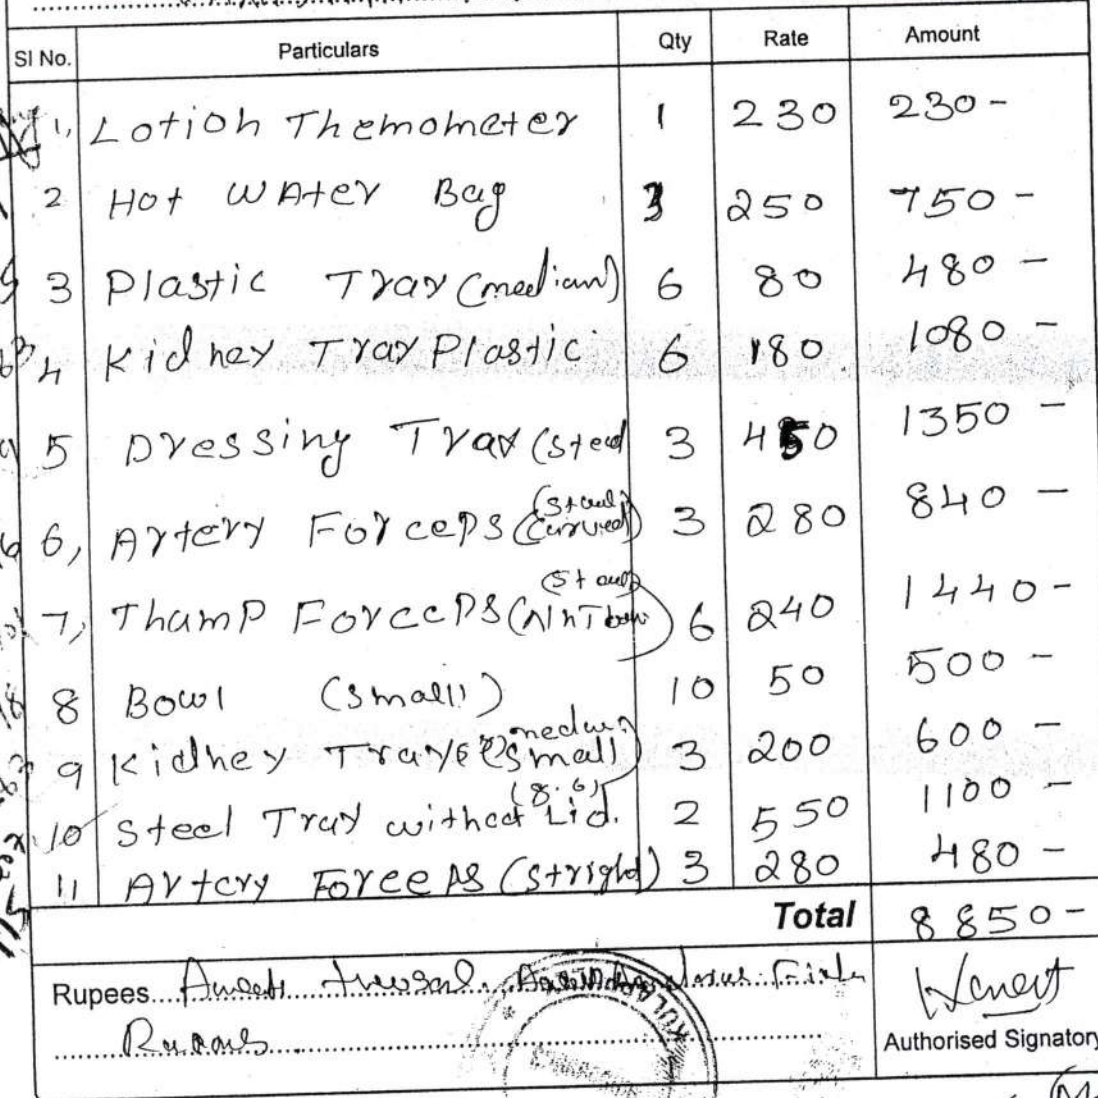 Sl No. Particulars Qty Rate Amount
1, Lotion Themometer 1 230 230-
2 Hot WAter Bag 3 250 750-
3 Plastic Tray (median) 6 80 480-
4 Kidney Tray Plastic 6 180 1080-
5 Dressing Tray (Steel 3 450 1350-
6, Artery Forceps (Curved) 3 280 840-
7, Thamp Forceps 6 240 1440-
8 Bowl (Small) 10 50 500-
9 Kidney Tray (Small) 3 200 600-
(8.6)
10 Steel Tray without Lid. 2 550 1100-
11 Artery Forceps (Stright) 3 280 480-
Total 8850-
Rupees
KULA
Authorised Signatory